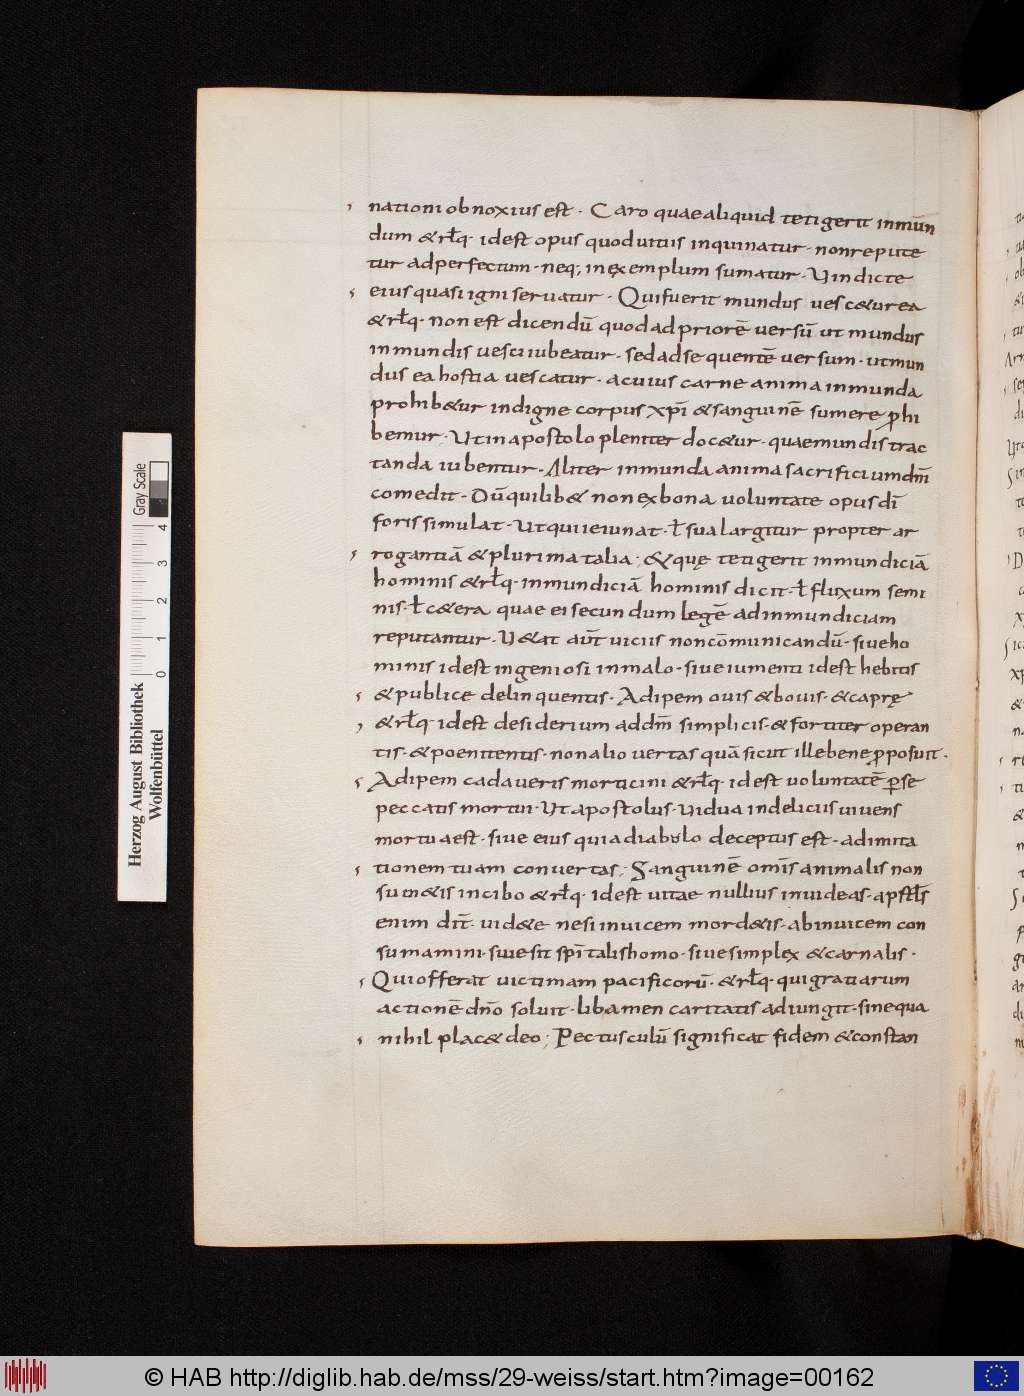 nationi obnoxius est · Caro quae aliquid tetigerit inmūn
dum & rłq · idest opus quod uitiis inquinatur · non repute
tur ad perfectum · neq; in exemplum sumatur · Vindicte
eius quasi igni seruatur · Qui fuerit mundus uesc&ur ea
& rłq · non est dicendū quod ad priorē uersū ut mundus
inmundis uesci iubeatur · sed ad sequentē uersum · ut mun
dus ea hostia uescatur · a cuius carne anima inmunda
prohib&ur indigne corpus xpī & sanguinē sumere ꝓhi
bemur · Ut in apostolo pleniter doc&ur · quae mundis trac
tanda iubentur · Aliter inmunda anima sacrificium dn̄i
comedit · Dū quilib& non ex bona uoluntate opus dī
foris simulat · Ut qui ieiunat · ł sua largitur propter ar
rogantiā & plurima talia ; & quę tetigerit inmundiciā
hominis & rłq · inmundiciā hominis dicit · ł fluxum semi
nis · ł c&era quae ei secundum legē ad inmundiciam
reputantur · V&at aūt uiciis non cōmunicandū · siue ho
minis idest ingeniosi in malo · siue iumenti idest hebitis
& publice delinquentis · Adipem ouis & bouis · & caprę
& rłq · idest desiderium ad dn̄m simplicis · & fortiter operan
tis · & poenitentis · non alio uertas quā sicut ille bene ꝓposuit ·
Adipem cadaueris morticini & rłq · idest uoluntatē ꝑ se
peccatis mortui · Ut apostolus · Vidua in deliciis uiuens
mortua est · siue eius qui a diabolo deceptus est · ad imita
tionem tuam conuertas ; Sanguinē om̄is animalis non
sum&is in cibo & rłq · idest uitae nullius inuideas · apstl̄s
enim dīt · uid&e ne si inuicem mord&is · ab inuicem con
sumamini · siue sit spītalis homo · siue simplex & carnalis ·
Qui offerat uictimam pacificorū · & rłq · qui gratiarum
actionē dn̄o soluit · libamen caritatis adiungit · sine qua
nihil plac& deo ; Pectusculū significat fidem & constan
Gray Scale
0 1 2 3 4
Herzog August Bibliothek
Wolfenbüttel
© HAB http://diglib.hab.de/mss/29-weiss/start.htm?image=00162